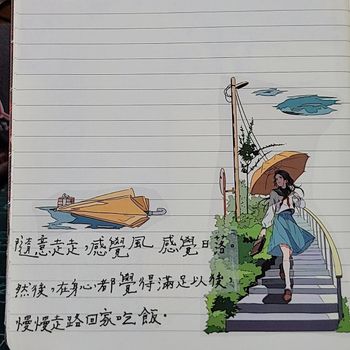 隨意走走,感覺風 感覺日落。
然後,在身心都覺得滿足以後,
慢慢走路回家吃飯.